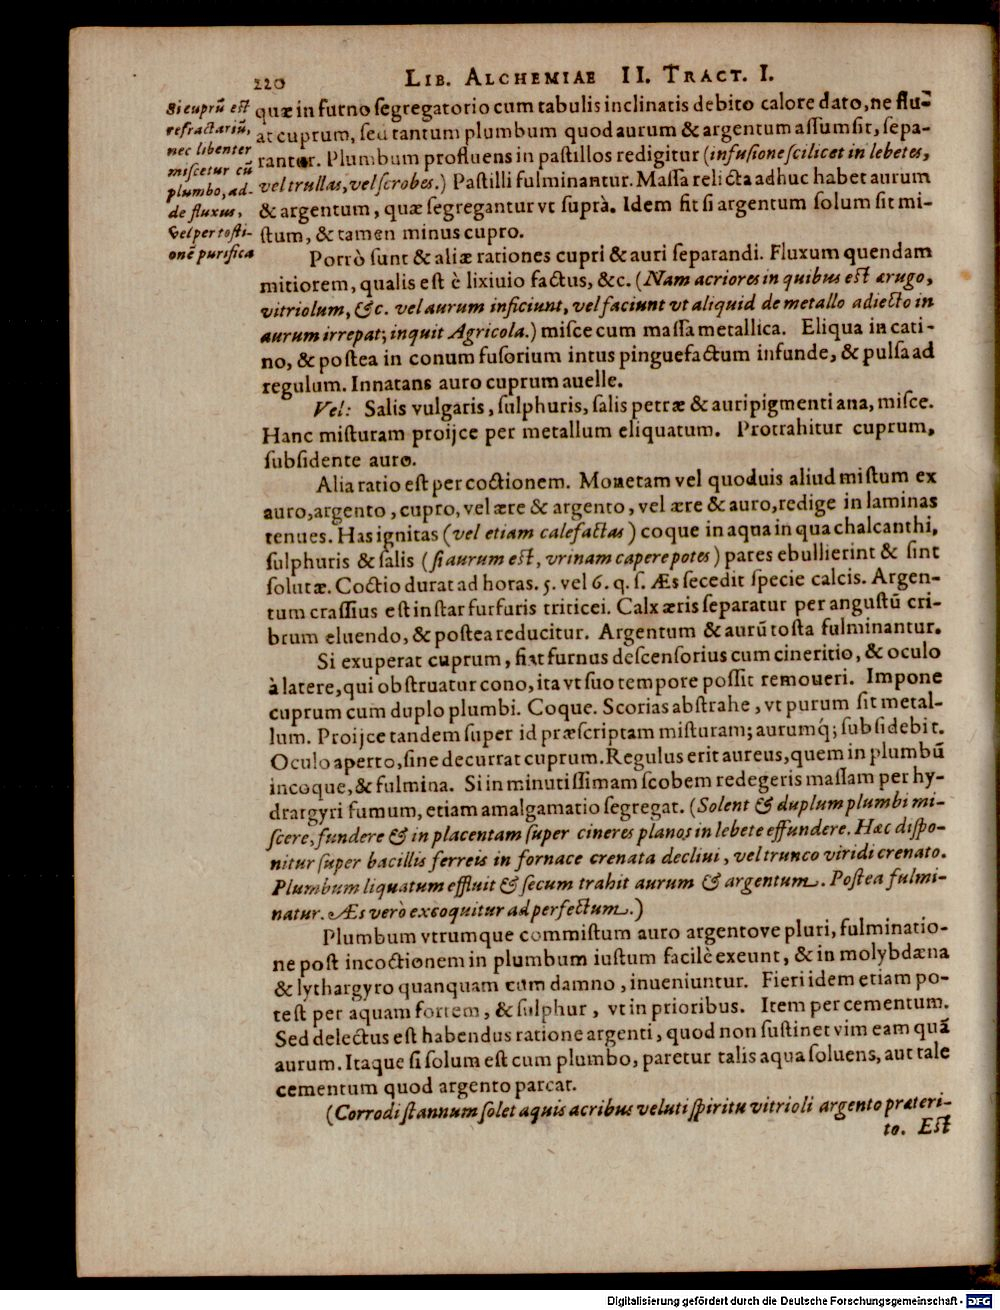 220
LIB. ALCHEMIAE II. TRACT. I.
Si cuprũ est
refractariũ,
nec libenter
miscetur cũ
plumbo, ad-
de fluxus,
vel per tosti-
onẽ purifica
quæ in furno ſegregatorio cum tabulis inclinatis debito calore dato, ne flu-
at cuprum, ſed tantum plumbum quod aurum & argentum aſſumſit, ſepa-
rantur. Plumbum profluens in paſtillos redigitur (infuſione ſcilicet in lebetes,
vel trullas, vel ſcrobes.) Paſtilli fulminantur. Maſſa relicta adhuc habet aurum
& argentum, quæ ſegregantur vt ſuprà. Idem fit ſi argentum ſolum ſit mi-
ſtum, & tamen minus cupro.
Porrò ſunt & aliæ rationes cupri & auri ſeparandi. Fluxum quendam
mitiorem, qualis eſt è lixiuio factus, &c. (Nam acriores in quibus eſt ærugo,
vitriolum, &c. vel aurum inficiunt, vel faciunt vt aliquid de metallo adiecto in
aurum irrepat; inquit Agricola.) miſce cum maſſa metallica. Eliqua in cati-
no, & poſtea in conum fuſorium intus pinguefactum infunde, & pulſa ad
regulum. Innatans auro cuprum auelle.
Vel: Salis vulgaris, ſulphuris, ſalis petræ & auripigmenti ana, miſce.
Hanc miſturam proijce per metallum eliquatum. Protrahitur cuprum,
ſubſidente auro.
Alia ratio eſt per coctionem. Monetam vel quoduis aliud miſtum ex
auro, argento, cupro, vel ære & argento, vel ære & auro, redige in laminas
tenues. Has ignitas (vel etiam calefactas) coque in aqua in qua chalcanthi,
ſulphuris & ſalis (ſi aurum eſt, vrinam capere potes) pares ebullierint & ſint
ſolutæ. Coctio durat ad horas. 5. vel 6. q. ſ. Æs ſecedit ſpecie calcis. Argen-
tum craſſius eſt inſtar furfuris triticei. Calx æris ſeparatur per anguſtũ cri-
brum eluendo, & poſtea reducitur. Argentum & aurũ toſta fulminantur.
Si exuperat cuprum, fiat furnus deſcenſorius cum cineritio, & oculo
à latere, qui obſtruatur cono, ita vt ſuo tempore poſſit remoueri. Impone
cuprum cum duplo plumbi. Coque. Scorias abſtrahe, vt purum ſit metal-
lum. Proijce tandem ſuper id præſcriptam miſturam; aurumq́; ſubſidebit.
Oculo aperto, ſine decurrat cuprum. Regulus erit aureus, quem in plumbũ
incoque, & fulmina. Si in minutiſſimam ſcobem redegeris maſſam per hy-
drargyri fumum, etiam amalgamatio ſegregat. (Solent & duplum plumbi mi-
ſcere, fundere & in placentam ſuper cineres planos in lebete effundere. Hæc diſpo-
nitur ſuper bacillis ferreis in fornace crenata decliui, vel trunco viridi crenato.
Plumbum liquatum effluit & ſecum trahit aurum & argentum. Poſtea fulmi-
natur. Æs verò excoquitur ad perfectum.)
Plumbum vtrumque commiſtum auro argentove pluri, fulminatio-
ne poſt incoctionem in plumbum iuſtum facilè exeunt, & in molybdæna
& lythargyro quanquam cum damno, inueniuntur. Fieri idem etiam po-
teſt per aquam fortem, & ſulphur, vt in prioribus. Item per cementum.
Sed delectus eſt habendus ratione argenti, quod non ſuſtinet vim eam quã
aurum. Itaque ſi ſolum eſt cum plumbo, paretur talis aqua ſoluens, aut tale
cementum quod argento parcat.
(Corrodi ſtannum ſolet aquis acribus veluti ſpiritu vitrioli argento præteri-
to. Eſt
Digitalisierung gefördert durch die Deutsche Forschungsgemeinschaft - DFG